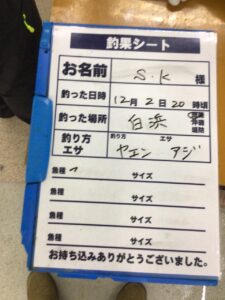 釣果シート
お名前 S.K 様
釣った日時 12月2日20時頃
釣った場所 白浜 沖磯 堤防
釣り方 エサ 釣り方 ヤエン エサ アジ
魚種 サイズ
魚種 サイズ
魚種 サイズ
魚種 サイズ
お持ち込みありがとうございました。